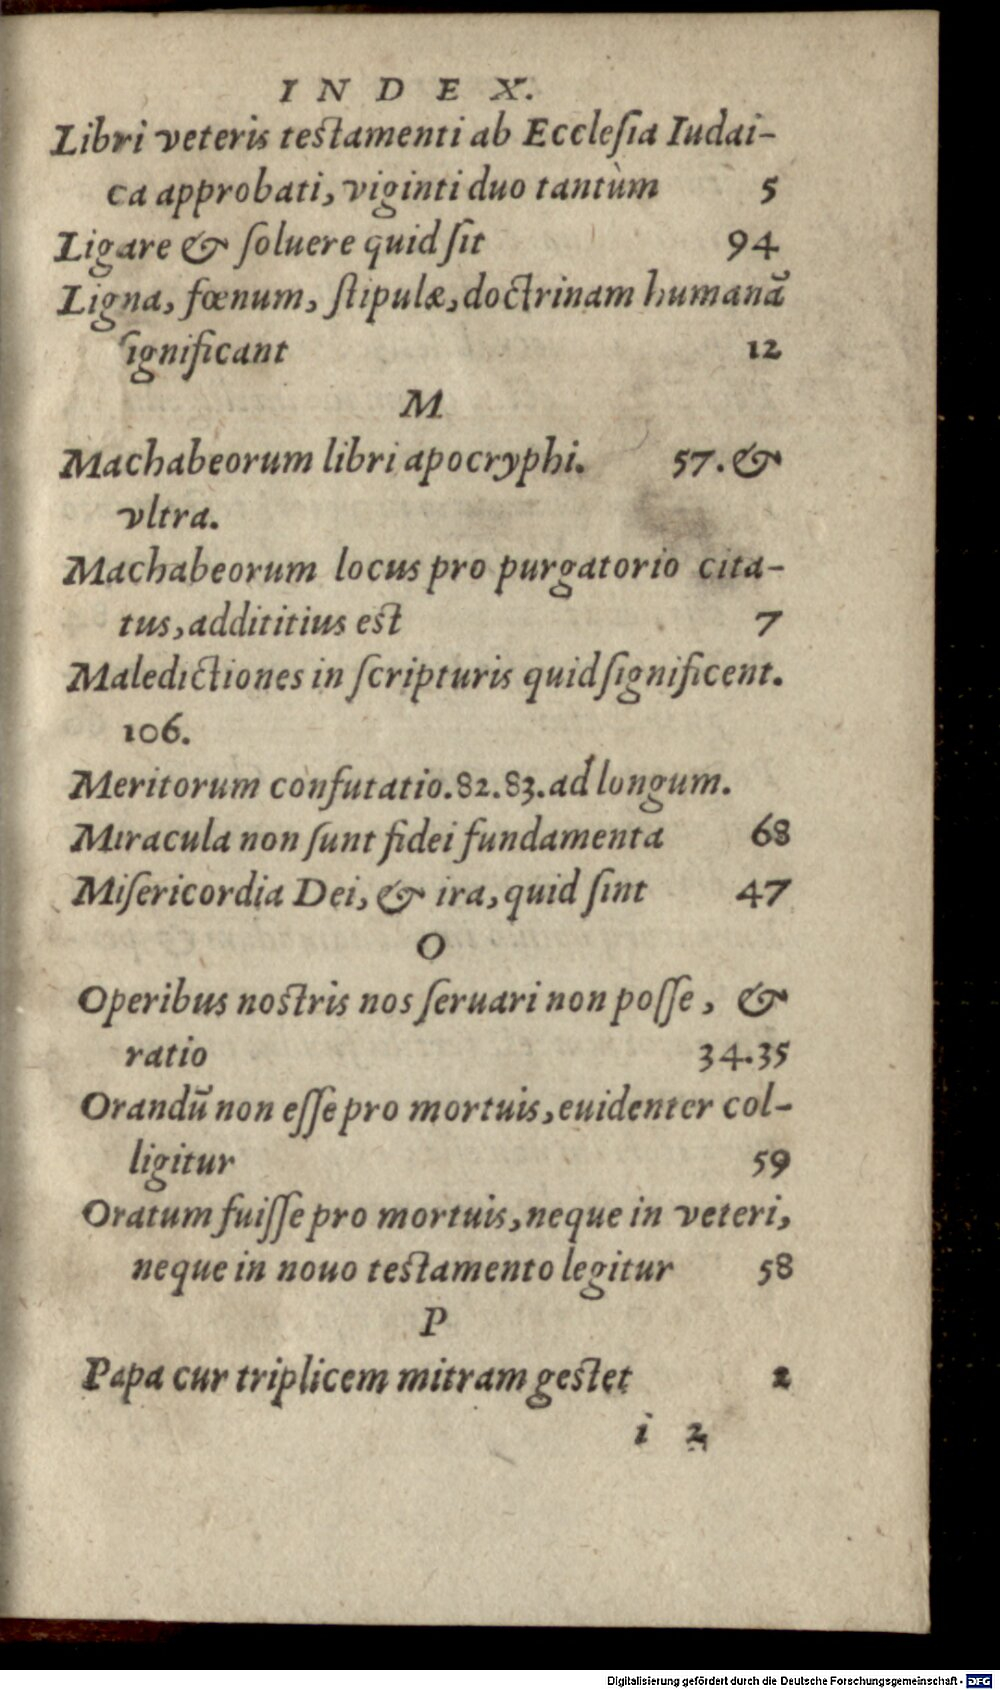 INDEX.
Libri veteris testamenti ab Ecclesia Iudai-
ca approbati, viginti duo tantùm 5
Ligare & soluere quid sit 94
Ligna, fœnum, stipulæ, doctrinam humanā
significant 12
M
Machabeorum libri apocryphi. 57. &
vltra.
Machabeorum locus pro purgatorio cita-
tus, addititius est 7
Maledictiones in scripturis quid significent.
106.
Meritorum confutatio. 82. 83. ad longum.
Miracula non sunt fidei fundamenta 68
Misericordia Dei, & ira, quid sint 47
O
Operibus nostris nos seruari non posse, &
ratio 34.35
Orandū non esse pro mortuis, euidenter col-
ligitur 59
Oratum fuisse pro mortuis, neque in veteri,
neque in nouo testamento legitur 58
P
Papa cur triplicem mitram gestet 2
i 2
Digitalisierung gefördert durch die Deutsche Forschungsgemeinschaft - DFG